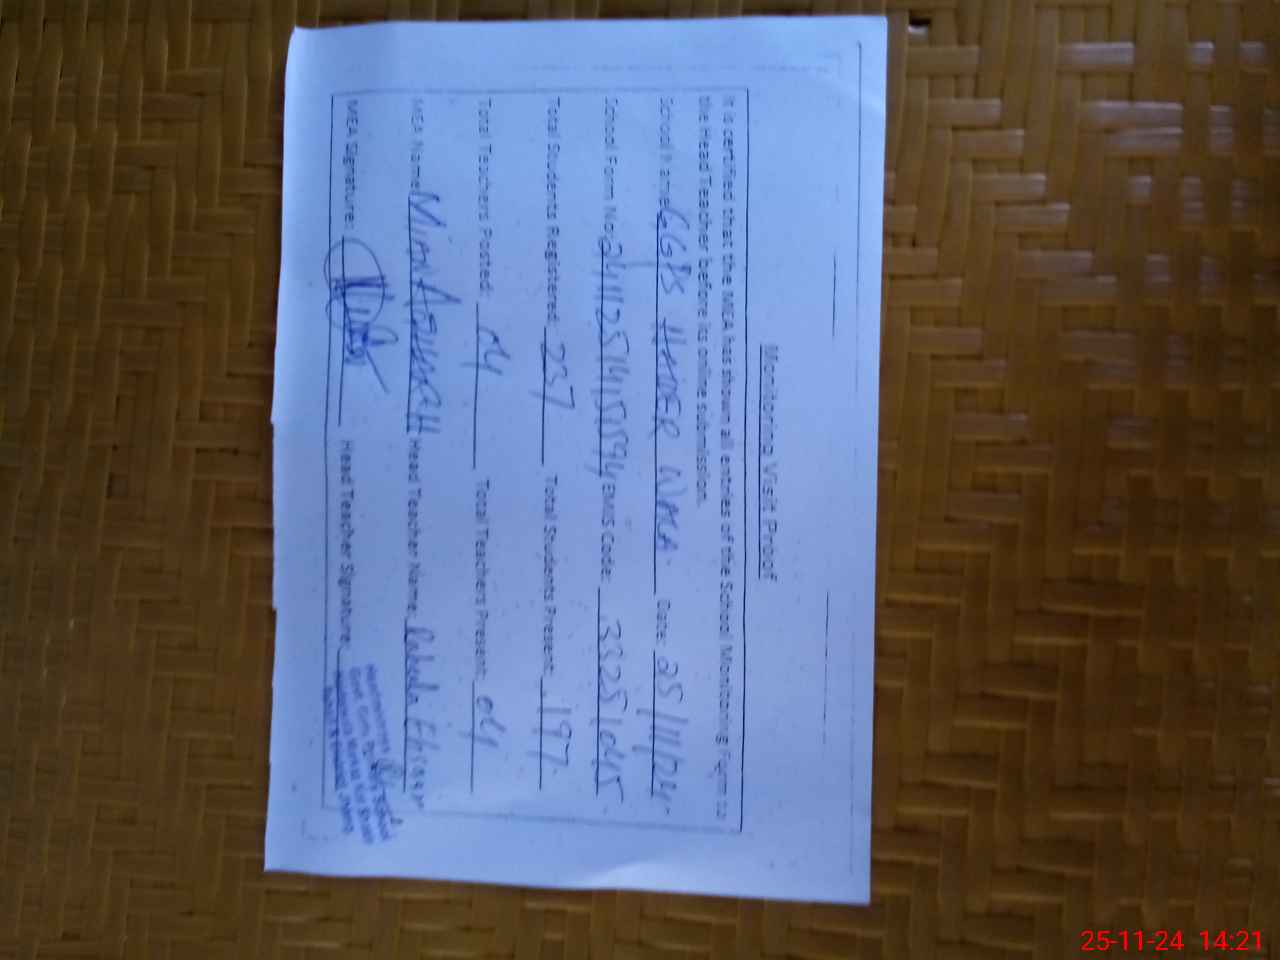 Monitoring Visit Proof
It is certified that the MEA has shown all entries of the School Monitoring Form to
the Head Teacher before its online submission.
School Name: GGPS HAIDER WALA Date: 25/11/24
School Form No: EMIS Code: 33251045
Total Students Registered: 237 Total Students Present: 197
Total Teachers Posted: 04 Total Teachers Present: 04
MEA Name: MIAN Head Teacher Name:
MEA Signature: Head Teacher Signature:
25-11-24 14:21